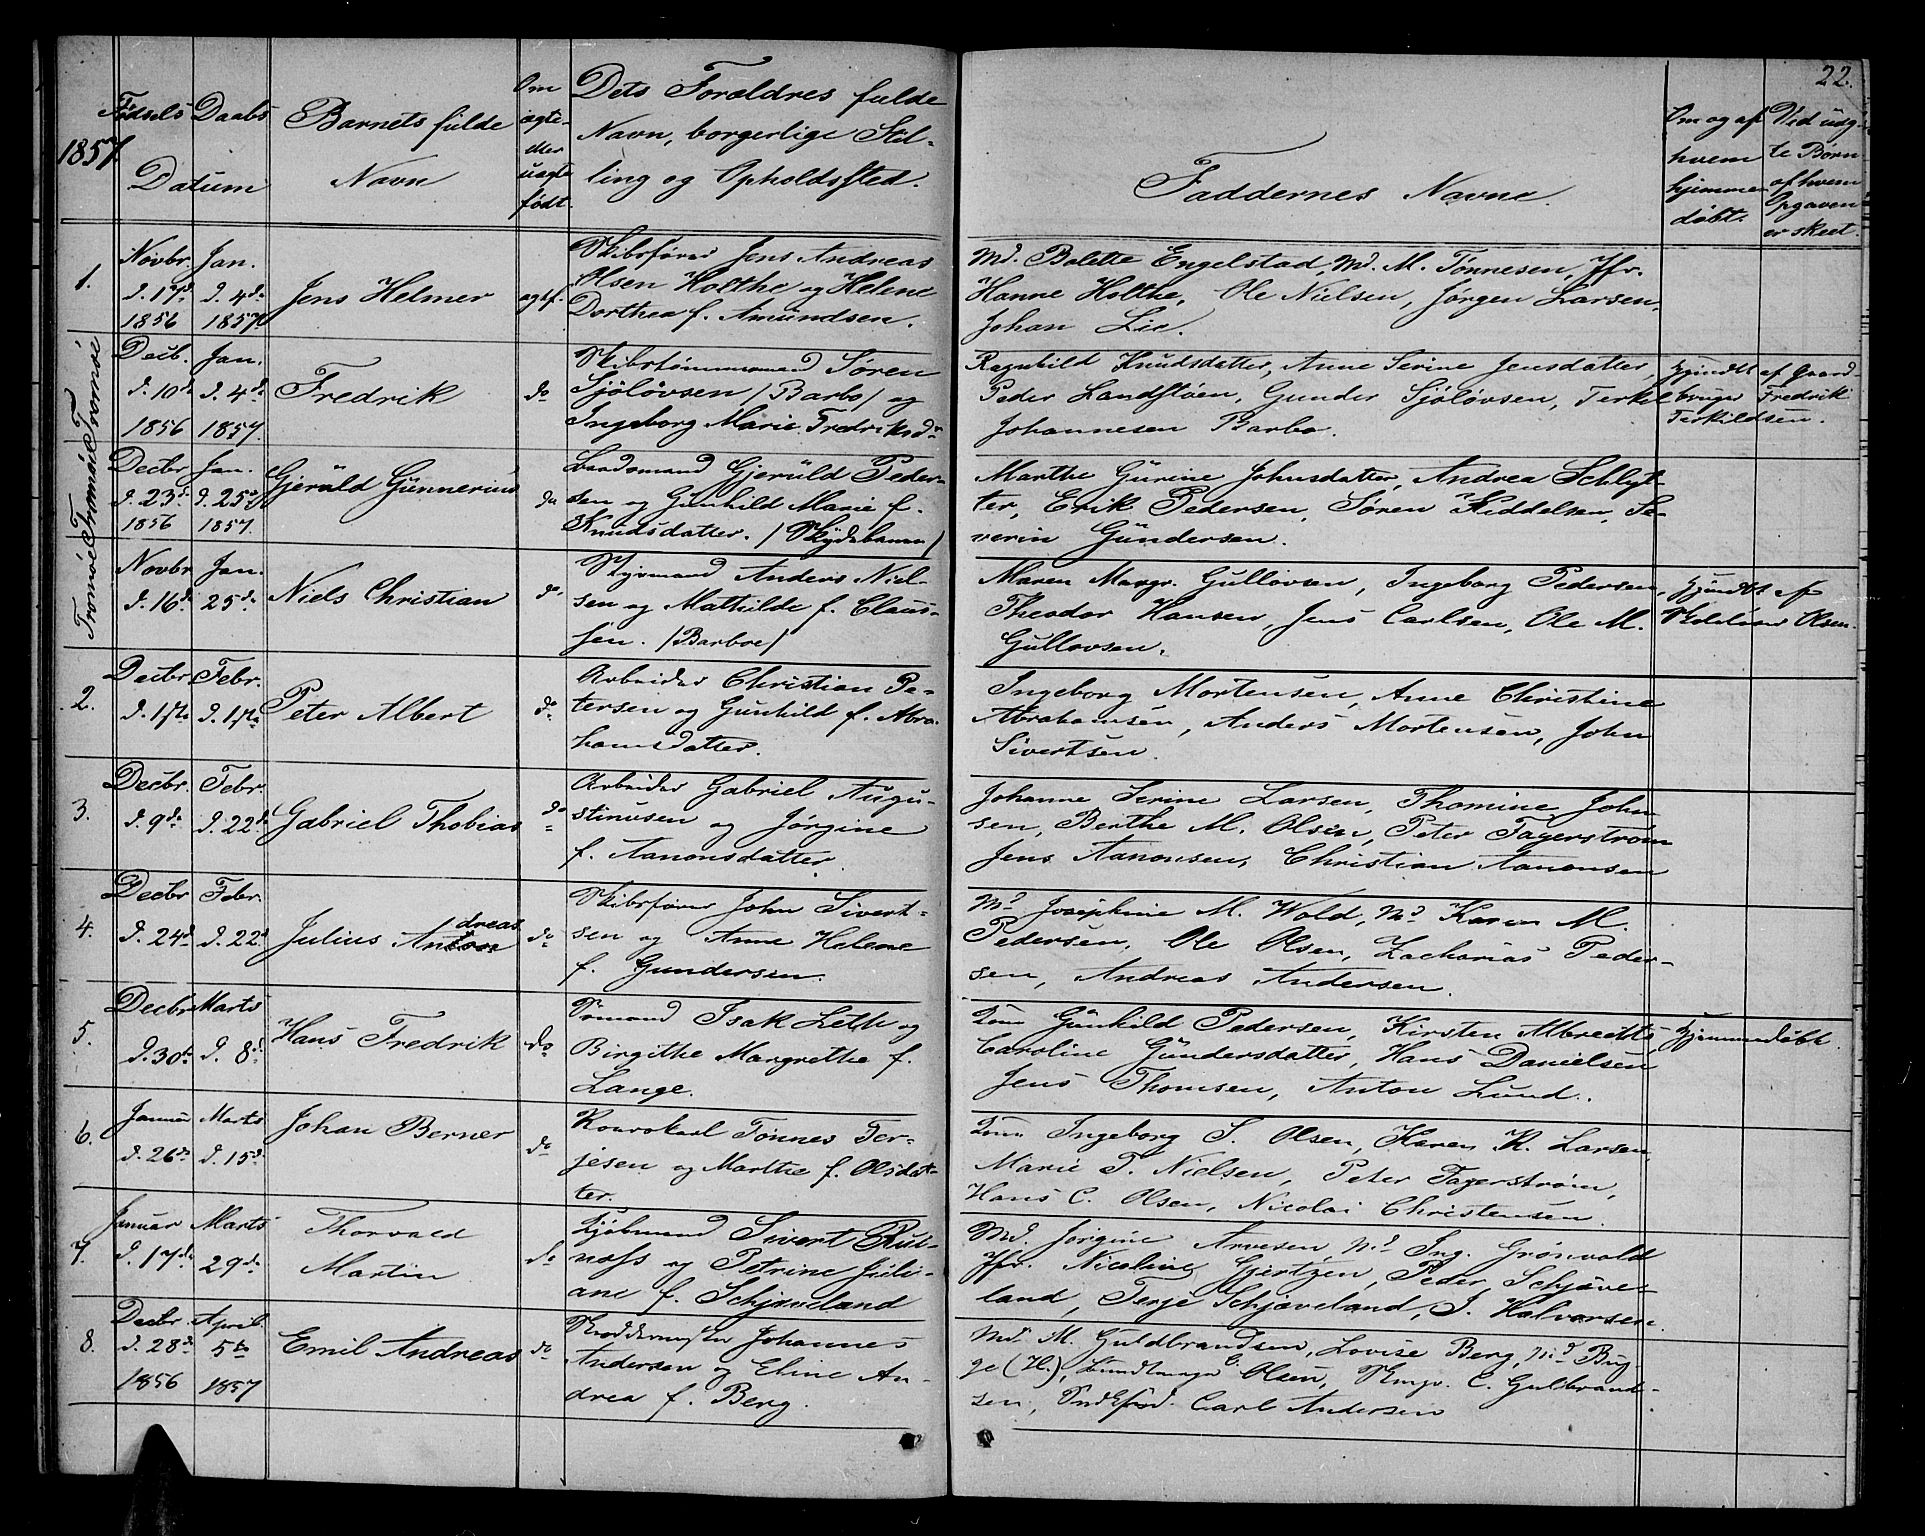 22.
1857.
Fødsels Daabs
Datum
Barnets fulde
Navn
Om
ægte
eller
uægte
født.
Dets Forældres fulde
Navn, borgerlige Stil-
ling og Opholdssted.
Faddernes Navne.
Om og af
hvem
hjemme
døbt.
Ved uæg-
te Børn
af hvem
Opgaven
er skeet.
1.
Novbr
d. 17de
1856
Jan.
d. 4de
1857
Jens Helmer
ægtef.
Skibsfører Jens Andreas
Olsen Holthe og Helene
Dorthea f. Amundsen.
Md. Bolette Engelstad, Md. M. Tønnesen, Jfr.
Hanne Holthe, Ole Nielsen, Jørgen Larsen,
Johan Lie.
Tromöe
Decb.
d. 10de
1856
Jan.
d. 4de
1857.
Fredrik
do
Skibstømmermand Søren
Sjöløvsen /Barbo/ og
Ingeborg Marie Fredriksdr
Ragnhild Knudsdatter, Anne Serine Jensdatter,
Peder Landstöen, Gunder Sjöløvsen, Terkil
Johannesen Barbo.
af Gaard-
bruger Fredrik
Terkildsen.
Tromöe
Decbr
d. 23de
1856
Jan.
d. 25de
1857.
Gjeruld Gunnerius
do
Gjeruld Peder-
sen og Gunhild Marie f.
Knudsdatter. /Skydebanen/
Marthe Gurine Johnsdatter, Andrea Schlyt-
ter, Erik Pedersen, Søren Kiddelsen, Se-
verin Gundersen.
Tromöe
Novbr
d. 16de
Jan.
25de
Niels Christian
do
Styrmand Anders Niel-
sen og Mathilde f. Claus-
sen. /Barboe/
Maren Margr. Gullovsen, Ingeborg Pedersen,
Theodor Hansen, Jens Carlsen, Ole M.
Gullovsen.
af
Olsen.
2.
Decbr
d. 1ste
Febr.
d. 1ste
Peter Albert
do
Arbeider Christian Pe-
tersen og Gunhild f. Abra-
hamsdatter.
Ingeborg Mortensen, Anne Christine
Abrahamsen, Anders Mortensen, John
Sivertsen.
3.
Decbr.
d. 9de
Febr.
d. 22de
Gabriel Thobias
do
Arbeider Gabriel Augu-
stinusen og Jørgine
f. Aanonsdatter.
Johanne Serine Larsen, Thomine John
sen, Berthe M. Olsen, Peter Fagerstrøm
Jens Aanonsen, Christian Aanonsen
4.
Decbr
d. 24d
Febr.
d. 22d
Julius Andreas
do
Skibsfører John Sivert-
sen og Anne Helene
f. Gundersen.
Md Josephine M. Wold, Md Karen M.
Pedersen, Ole Olsen, Zacharias Peder-
sen, Andreas Andersen.
5.
Decbr
d. 30de
Marts
d. 8de
Hans Fredrik
do
Sömand Isak Leth og
Birgithe Margrethe f.
Lange.
Gunhild Pedersen, Kirsten Albrechts
Caroline Gundersdatter, Hans Danielsen
Jens Thomsen, Anton Lund.
Hjemmedøbt.
6.
Januar
d. 26de
Marts
d. 15de
Johan Berner
do
Tønnes Ter-
jesen og Marthe f. Olsdat-
ter.
Ingeborg S. Olsen, Karen K. Larsen,
Marie T. Nielsen, Peter Fagerstrøm,
Hans C. Olsen, Nicolai Christensen.
7.
Januar
d. 17de
Marts
29de
Thorvald
Martin
do
Kjøbmand Sivert Rui-
næss og Petrine Juli-
ane f. Schjæveland
Md. Jørgine Arvesen, Md Ing. Grønvold
Jfr. Nicoline Gjertzen, Peder Schjæve-
land, Terje Schjæveland, J. Halvorsen.
8.
Decbr
d. 28de
1856
April
5te
1857
Emil Andreas
do
Skræddermester Johannes
Andersen og Eline An-
drea f. Berg.
Md. M. Guldbrandsen, Lovise Berg, Md Bug-
ge (H.), Olsen, C. Gulbrand-
sen, Carl Andersen